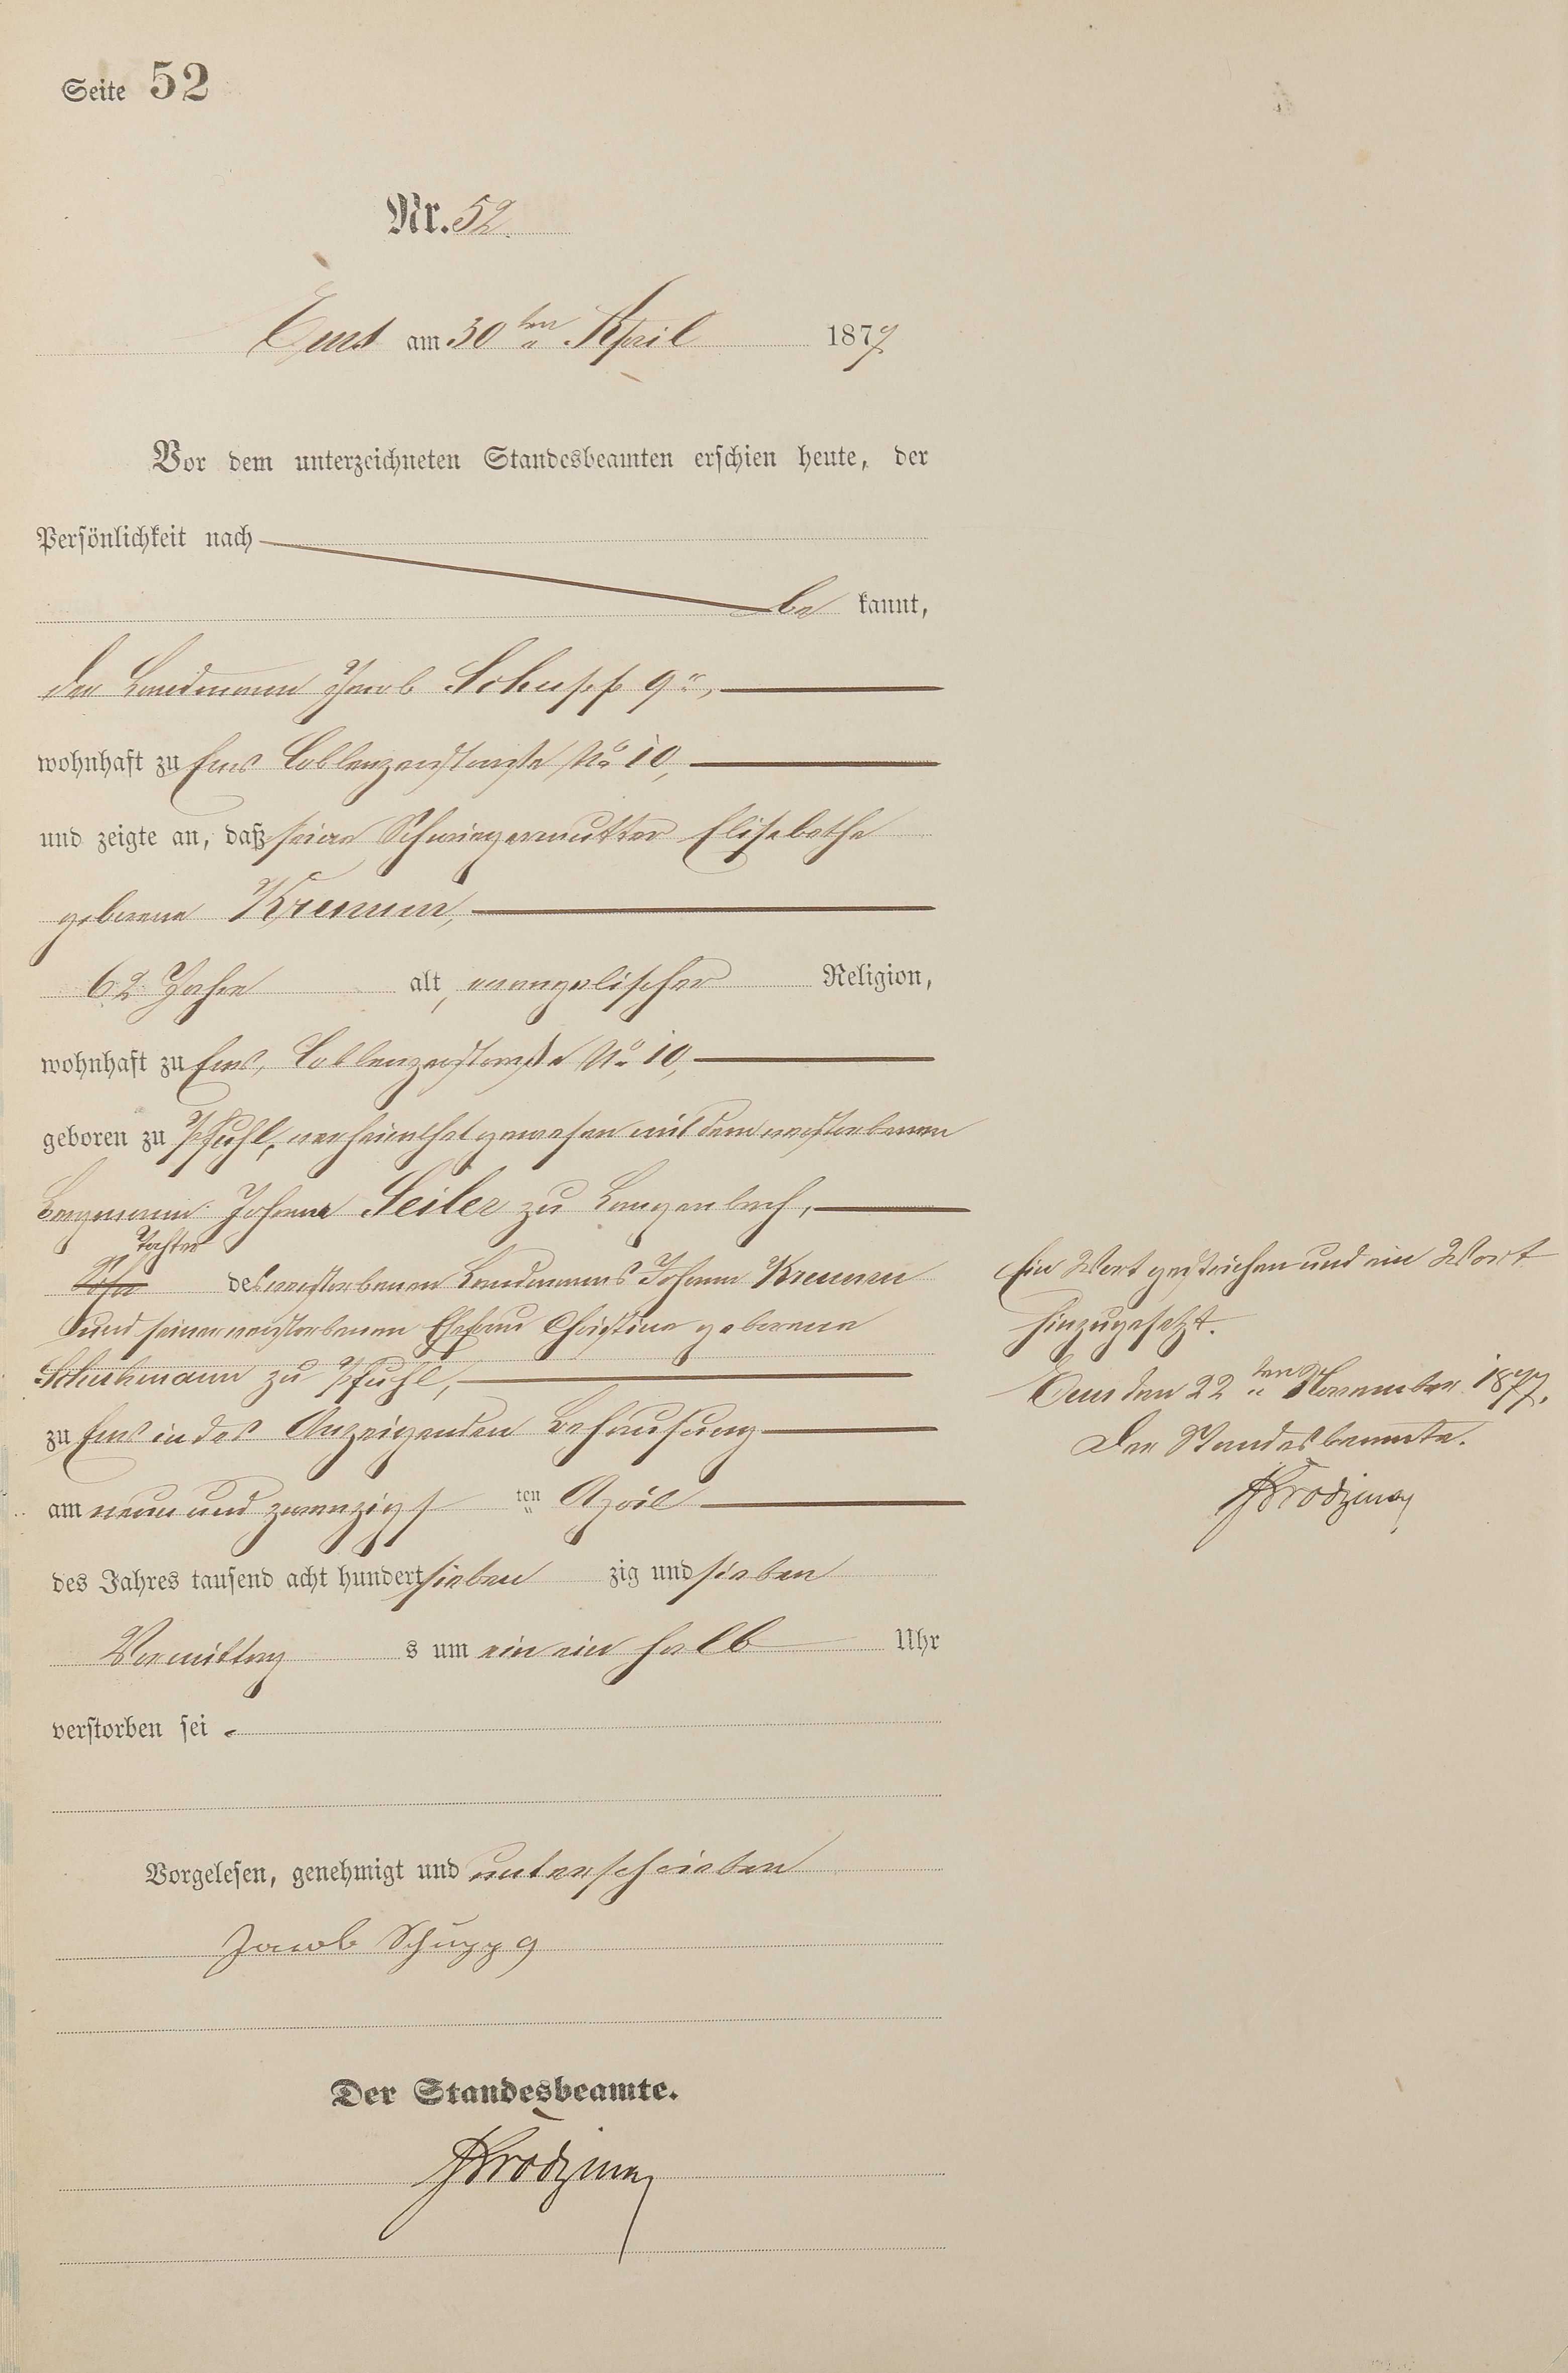 Seite 52
Nr. 52.
Ems am 30ten April 1877
Vor dem unterzeichneten Standesbeamten erschien heute, der
Persönlichkeit nach
be kannt,
der Landmann Jacob Schupp 9r,
wohnhaft zu Ems Coblenzerstraße No 10,
und zeigte an, daß seine Schwiegermutter Elisabethe
geborene
62 Jahre alt, evangelischer Religion,
wohnhaft zu Ems, Coblenzerstraße No 10,
geboren zu Pfuhl, verheirathet gewesen mit dem verstorbenen
Bergmann Johann Seiler zu Langenbach,
Tochter
Sohn des verstorbenen Landmanns Johann
und seiner verstorbenen Ehefrau Christine geborene
zu Pfuhl,
zu Ems in des Anzeigenden Behausung
am neun und zwanzigsten April
des Jahres tausend acht hundert sieben zig und sieben
Vormittag s um ein ein halb Uhr
verstorben sei.
Vorgelesen, genehmigt und unterschrieben
Jacob Schupp 9
Der Standesbeamte.
Ein Wort gestrichen und ein Wort
hinzugesetzt.
Ems den 22ten November 1877.
Der Standesbeamte.